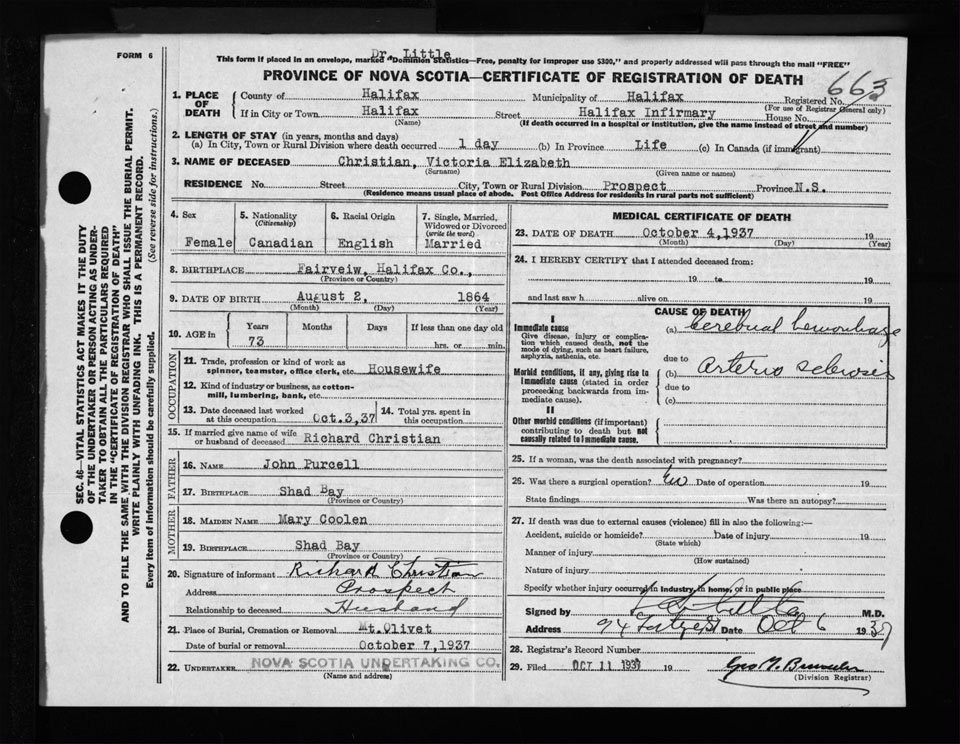 FORM 6
Dr. Little
This form if placed in an envelope, marked "Dominion Statistics—Free, penalty for improper use $300," and properly addressed will pass through the mail "FREE"
PROVINCE OF NOVA SCOTIA—CERTIFICATE OF REGISTRATION OF DEATH
663
1. PLACE OF DEATH
County of Halifax Municipality of Halifax Registered No.
(For use of Registrar General only)
If in City or Town Halifax Street Halifax Infirmary House No.
(Name) (If death occurred in a hospital or institution, give the name instead of street and number)
2. LENGTH OF STAY (in years, months and days)
(a) In City, Town or Rural Division where death occurred 1 day (b) In Province Life (c) In Canada (if immigrant)
3. NAME OF DECEASED Christian, Victoria Elizabeth
(Surname) (Given name or names)
RESIDENCE No. Street City, Town or Rural Division Prospect Province N.S.
(Residence means usual place of abode. Post Office Address for residents in rural parts not sufficient)
4. Sex
Female
5. Nationality
(Citizenship)
Canadian
6. Racial Origin
English
7. Single, Married, Widowed or Divorced
(write the word)
Married
8. BIRTHPLACE Fairveiw, Halifax Co.,
(Province or Country)
9. DATE OF BIRTH August 2, 1864
(Month) (Day) (Year)
10. AGE in
Years Months Days If less than one day old
73 hrs. or min.
OCCUPATION
11. Trade, profession or kind of work as
spinner, teamster, office clerk, etc. Housewife
12. Kind of industry or business, as cotton-
mill, lumbering, bank, etc.
13. Date deceased last worked at this occupation Oct.3,37
14. Total yrs. spent in this occupation
15. If married give name of wife
or husband of deceased Richard Christian
FATHER
16. NAME John Purcell
17. BIRTHPLACE Shad Bay
(Province or Country)
MOTHER
18. MAIDEN NAME Mary Coolen
19. BIRTHPLACE Shad Bay
(Province or Country)
20. Signature of informant Richard Christian
Address Prospect
Relationship to deceased Husband
21. Place of Burial, Cremation or Removal Mt.Olivet
Date of burial or removal October 7,1937
22. UNDERTAKER NOVA SCOTIA UNDERTAKING CO.
(Name and address)
MEDICAL CERTIFICATE OF DEATH
23. DATE OF DEATH October 4,1937 19
(Month) (Day) (Year)
24. I HEREBY CERTIFY that I attended deceased from:
19 to 19
and last saw h alive on 19
CAUSE OF DEATH
I
Immediate cause
Give disease, injury or complication which caused death, not the mode of dying, such as heart failure, asphyxia, asthenia, etc.
(a) Cerebral hemorrhage
due to
Morbid conditions, if any, giving rise to immediate cause (stated in order proceeding backwards from immediate cause).
(b) Arterio sclerosis
due to
(c)
II
Other morbid conditions (if important) contributing to death but not causally related to immediate cause.
25. If a woman, was the death associated with pregnancy?
26. Was there a surgical operation? Date of operation 19
State findings Was there an autopsy?
27. If death was due to external causes (violence) fill in also the following:—
Accident, suicide or homicide? Date of injury 19
(State which)
Manner of injury
(How sustained)
Nature of injury
Specify whether injury occurred in industry, in home, or in public place
Signed by Little M.D.
Address 94 Date Oct 6 1937
28. Registrar's Record Number
29. Filed OCT 11 1937 19
(Division Registrar)
SEC. 46—VITAL STATISTICS ACT MAKES IT THE DUTY
OF THE UNDERTAKER OR PERSON ACTING AS UNDER-
TAKER TO OBTAIN ALL THE PARTICULARS REQUIRED
IN THE "CERTIFICATE OF REGISTRATION OF DEATH"
AND TO FILE THE SAME WITH THE DIVISION REGISTRAR WHO SHALL ISSUE THE BURIAL PERMIT.
WRITE PLAINLY WITH UNFADING INK. THIS IS A PERMANENT RECORD.
Every item of information should be carefully supplied. (See reverse side for instructions.)